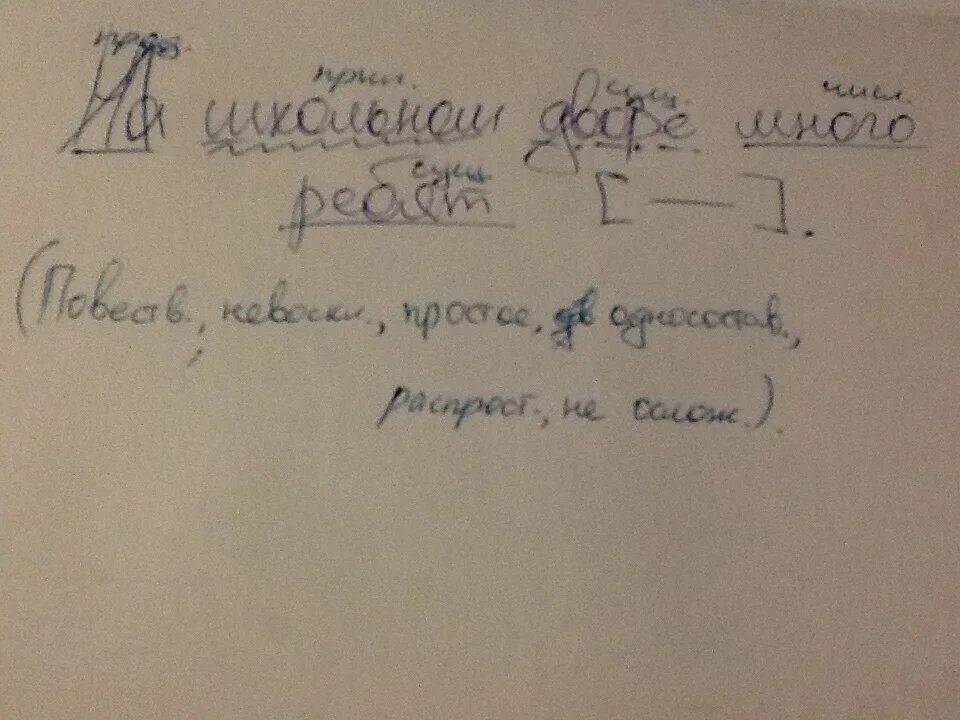 предл. прил. сущ. числ.
На школьном дворе много
сущ.
ребят [—].
(Повеств., невоскл., простое, односостав.,
распрост., не ослож.).